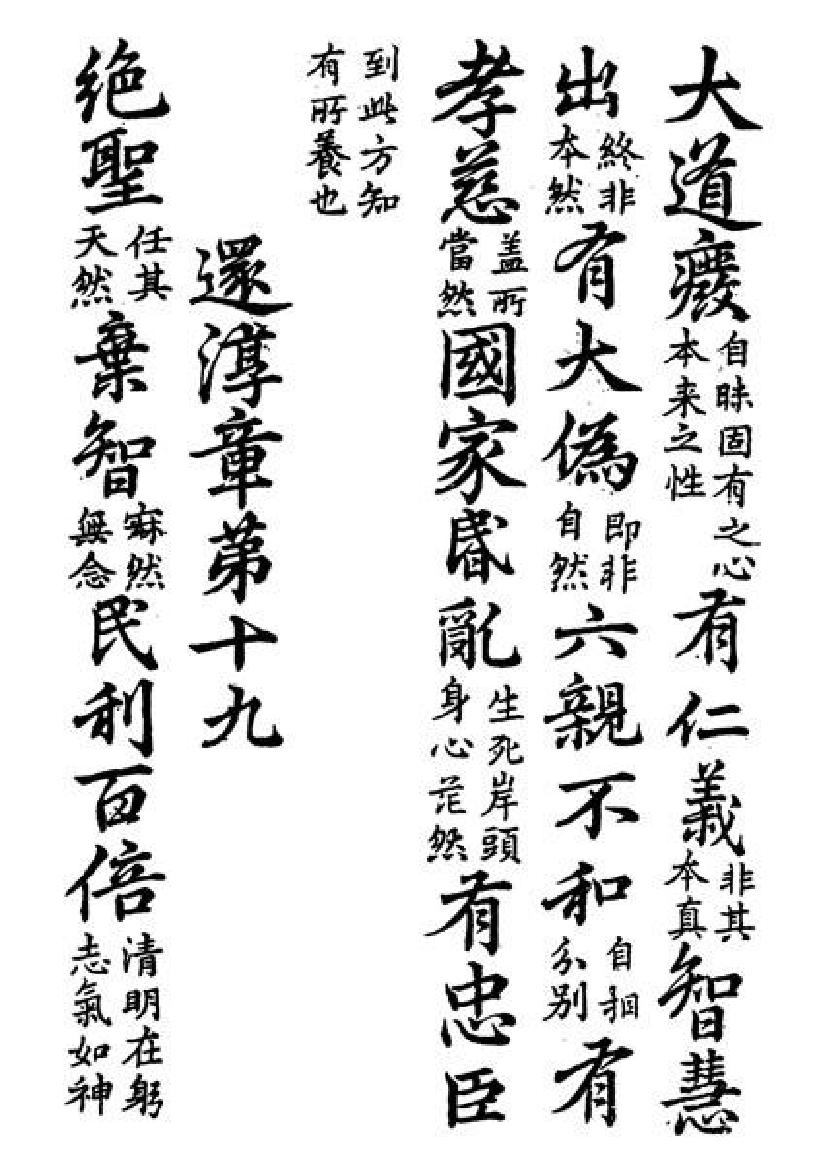 大道癈自昧固有之心本来之性有仁義非其本真智慧
出終非本然有大偽即非自然六親不和自相分别有
孝慈盖所當然國家昬亂生死岸頭身心茫然有忠臣
到此方知有所養也
還淳章第十九
絶聖任其天然棄智寂然無念民利百倍清明在躬志氣如神